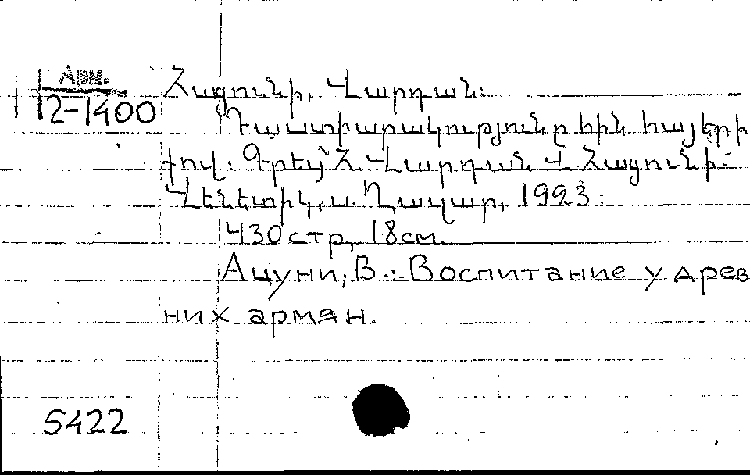 Арм.
12-1400
Հացունի, Վարդան:
Դաստիարակությունը հին հայերի
քով. Գրեց՝ Հ. Վարդան Վ. Հացունի:-
Վենետիկ, ս. Ղազար, 1923:
430 стр, 18см.
Ацуни, В.: Воспитание у древ
них армян.
5422